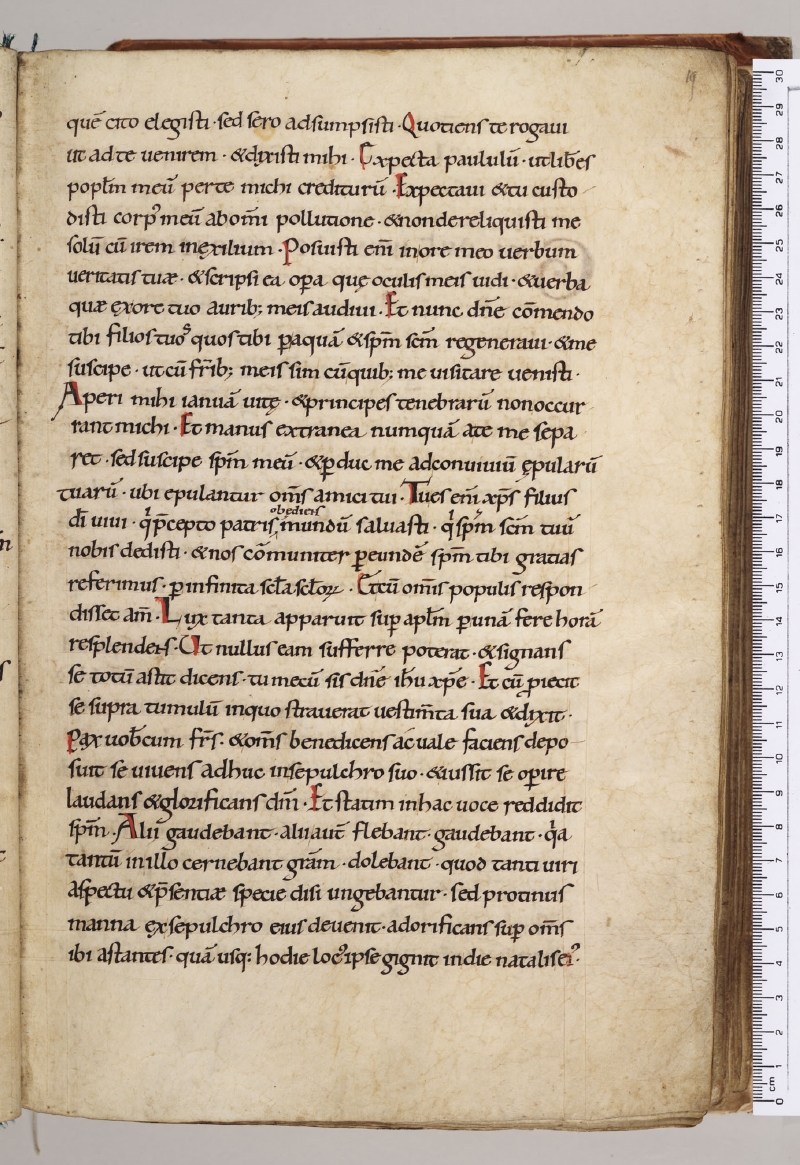 19
quē cito elegisti · sed sero adsumpsisti · Quotiens te rogaui
ut ad te uenirem · & dixisti mihi · Expecta paululū · ut lib̄es
popłm meū per te michi crediturū · Expectaui & tu custo
disti corpꝰ meū ab om̄i pollutione · & non dereliquisti me
solū cū irem in exilium · Posuisti em̄ in ore meo uerbum
ueritatis tuæ · & scripsi ea oꝑa quę oculis meis uidi · & uerba
quæ ex ore tuo aurib; meis audiui · Et nunc dn̄e cōmendo
tibi filios tuoˢ quos tibi ꝑ aquā & sp̄m sc̄m regeneraui · & me
suscipe · ut cū fr̄ib; meis sim cū quib; me uisitare uenisti ·
Aperi mihi ianuā uitę · & principes tenebrarū non occur
rant michi · Et manus extranea numquā a te me sepa
ret · sed suscipe sp̄m meū · & ꝑduc me ad conuiuiū ępularū
tuarū · ubi epulantur om̄s amici tui · Tu es em̄ xp̄s filius
obediens
dī uiui · qͥ p̄cepto patris, mundū saluasti · qͥ sp̄m sc̄m tuū
nobis dedisti · & nos cōmuniter ꝑ eundē sp̄m tibi gratias
referimus · ꝑ infinita scła scłoꝝ · Et cū om̄is populis respon
disset am̄ · Lux tanta apparuit suꝑ apłm ꝑ unā fere horā
resplendens · Ut nullus eam sufferre poterat · & signans
se totū astit dicens · tu mecū sis dn̄e ihū xp̄e · Et cū ꝓiecit
se supra tumulū in quo strauerat uestim̄ta sua & dixit ·
Pax uob̄cum fr̄s · & om̄s benedicens ac uale faciens depo
suit se uiuens adhuc in sepulchro suo · & iussit se oꝑire
laudans & glorificans dm̄ · Et statim in hac uoce reddidit
sp̄m · Alii gaudebant · alii aut̄ flebant · gaudebant · qͥa
tantū in illo cernebant gr̄am · dolebant · quod tanti uiri
aspectu & p̄sentiæ specie disiungebantur · sed protinus
manna ex sepulchro eius deuenit · adorificans suꝑ om̄s
ibi astantes · quā usq: hodie locꝰ ipse gignit in die natalis eiꝰ ·